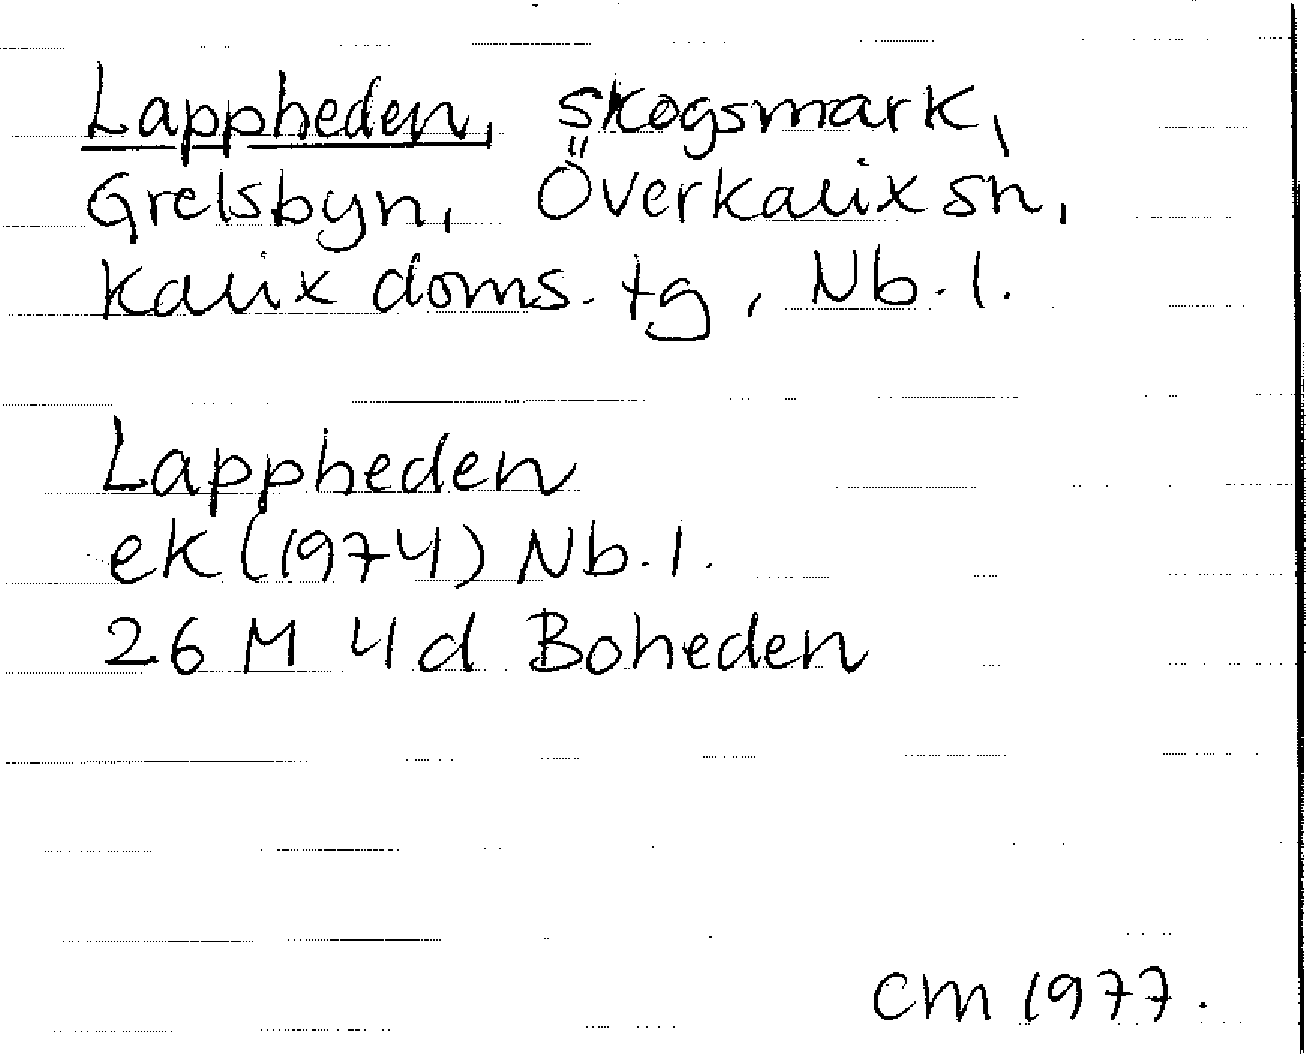 Lappheden, skogsmark,
Grelsbyn, Överkalix sn,
Kalix doms. tg, Nb. l.
Lappheden
ek (1974) Nb. l.
26 M 4d Boheden
CM 1977.